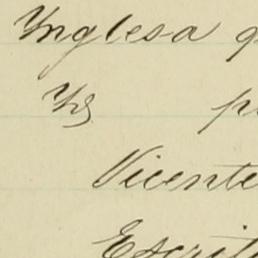 Ynglesa q
Yd p
Vicente
Escrit